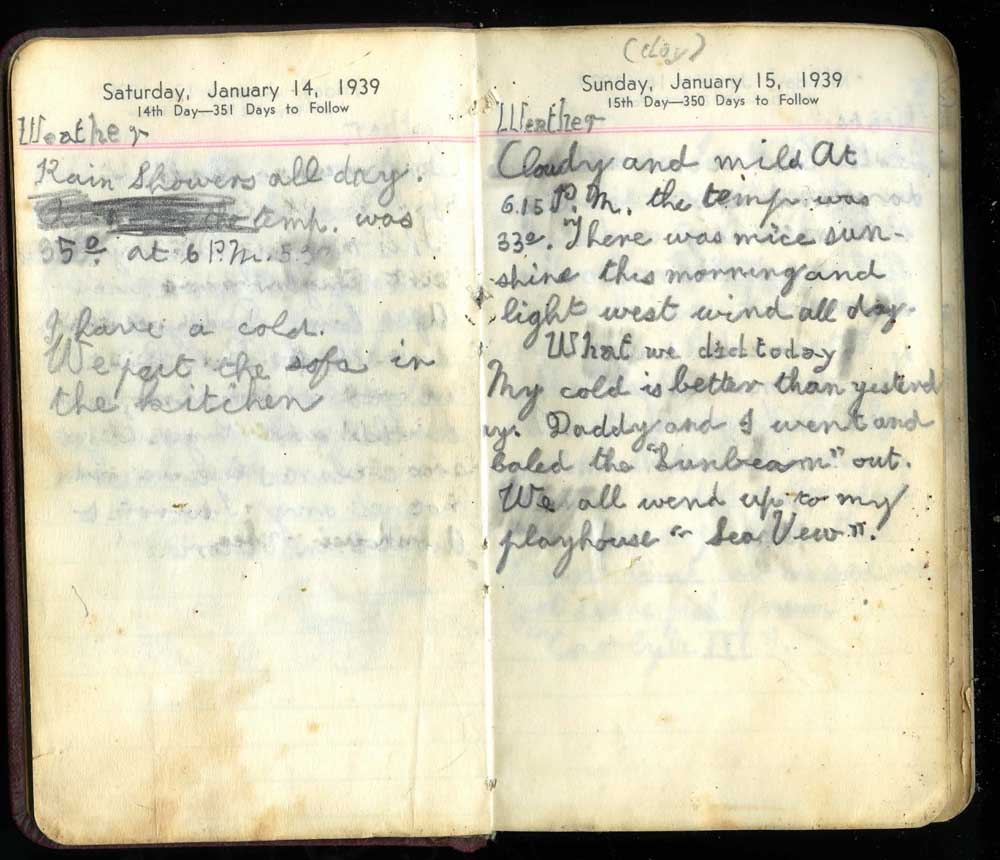 Saturday, January 14, 1939
14th Day—351 Days to Follow
Weather
Rain Showers all day.
temp. was
35° at 6 P.M. 5.30
I have a cold.
We put the sofa in
the kitchen
(day)
Sunday, January 15, 1939
15th Day—350 Days to Follow
Weather
Cloudy and mild At
6.15 P.M. the temp. was
33°. There was mice sun-
shine this morning and
light west wind all day.
What we did today
My cold is better than yesterd
ay. Daddy and I went and
baled the "Sunbeam" out.
We all wend up to my
playhouse "Sea Vew".